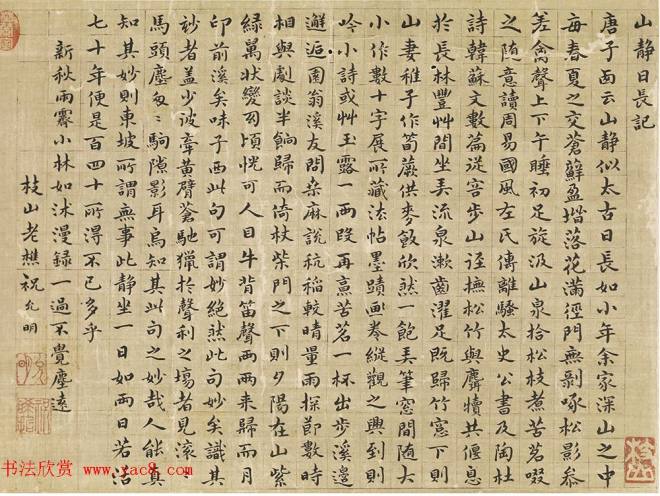 山静日長記
唐子西云山静似太古日長如小年余家深山之中
每春夏之交蒼蘚盈堦落花滿徑門無剝啄松影參
差禽聲上下午睡初足旋汲山泉拾松枝煮苦茗啜
之隨意讀周易國風左氏傳離騷太史公書及陶杜
詩韓蘇文數篇從容步山逕撫松竹與麛犢共偃息
於長林豐艸間坐弄流泉漱齒濯足既歸竹窓下則
山妻稚子作筍蕨供麥飯欣然一飽弄筆窓間隨大
小作數十字展所藏法帖墨蹟畫卷縱觀之興到則
吟小詩或艸玉露一兩段再烹苦茗一杯出步溪邊
邂逅園翁溪友問桑麻說秔稻較晴量雨探節數時
相與劇談半餉歸而倚杖柴門之下則夕陽在山紫
綠萬狀變幻頃恍可人目牛背笛聲兩兩來歸而月
印前溪矣味子西此句可謂妙絶然此句妙矣識其
妙者盖少彼牽黃臂蒼馳獵扵聲利之場者見滾滾
馬頭塵匆匆駒隙影耳烏知其此句之妙哉人能真
知其妙則東坡所謂無事此静坐一日如兩日若活
七十年便是百四十所得不已多乎
新秋雨霽小林如沐漫録一過不覺塵遠
枝山老樵祝允明
书法欣赏 www.yac8.com